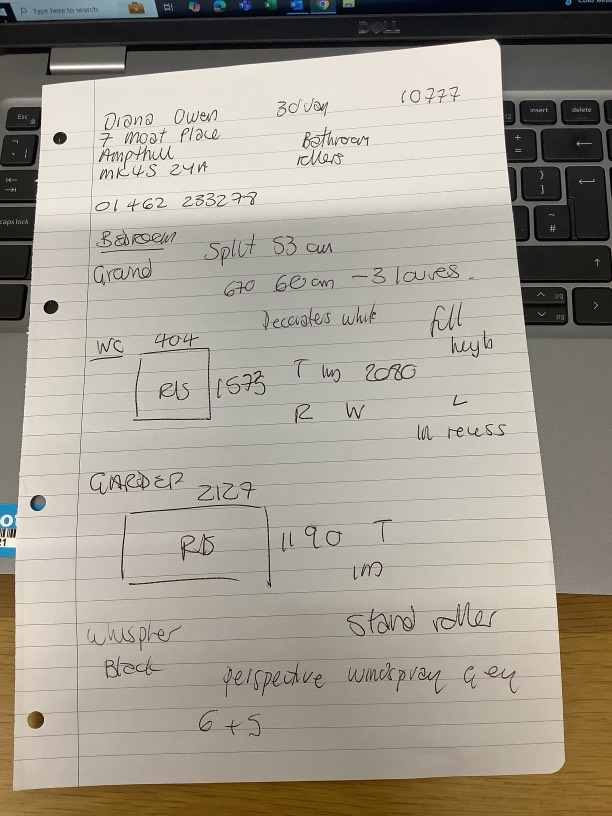 Type here to search
DELL
Diana Owen 30 Jan 10777
7 Moat Place Bathroom
Ampthill rollers
MK45 2YA
01462 233278
Bedroom
Grand Split 53 cm
670 60 cm - 3 louves.
Decorates white full
WC 404
R/S 1573 T 2080
R W L
In recess
GARDEP 2127
R/S 1190 T
Whispher Stand roller
Block perspective windspray
6 + 5
Esc
insert
delete
caps lock
pg
pg